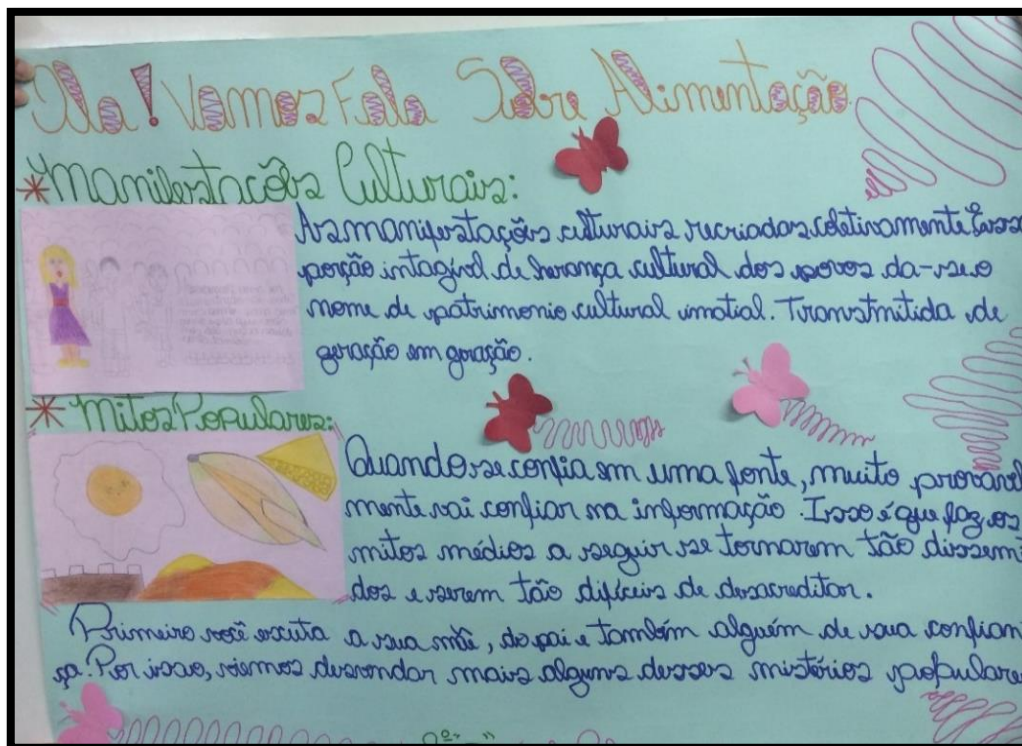 Ola! Vamos Fala Sobre Alimentação
*Manifestações Culturais:
As manifestações culturais recriadas coletivamente Essa
porção intagível de herança cultural dos povos da-se o
nome de patrimonio cultural imatial. Transtmitida de
geração em geração.
* Mitos Populares:
Quando se confia em uma fonte, muito provavel
mente vai confiar na informação. Isso é que faz os
mitos médios a seguir se tornarem tão dissemi
dos e serem tão difíceis de desacreditar.
Primeiro você escuta a sua mãe, do pai e também alguém de sua confian
ça. Por isso, viemos desvondar mais alguns desses mistérios populare